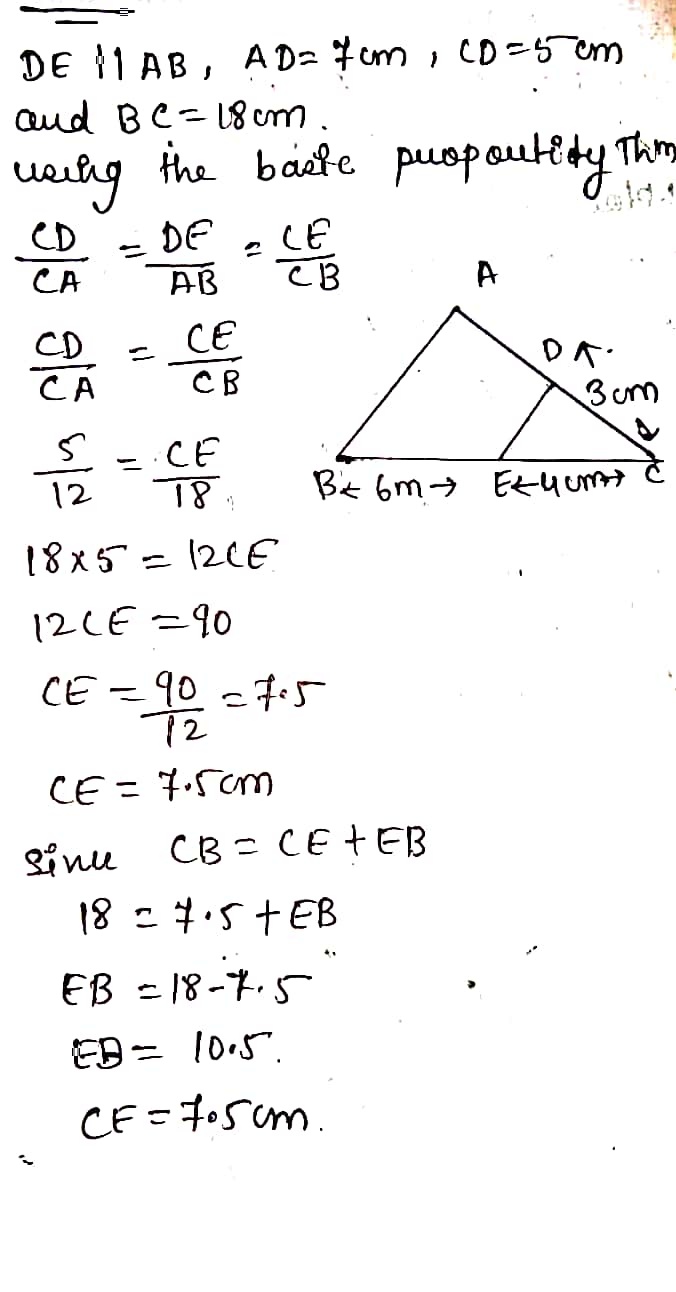 DE || AB, AD= 7cm, CD=5 cm
and BC=18cm.
using the basic Thm
CD/CA = DE/AB = CE/CB
CD/CA = CE/CB
5/12 = CE/18
A
D
3cm
B← 6m → E←4cm→ C
18×5 = 12CE
12CE =90
CE = 90/12 =7.5
CE = 7.5cm
CB = CE + EB
18 = 7.5+EB
EB =18-7.5
EB= 10.5.
CE=7.5cm.